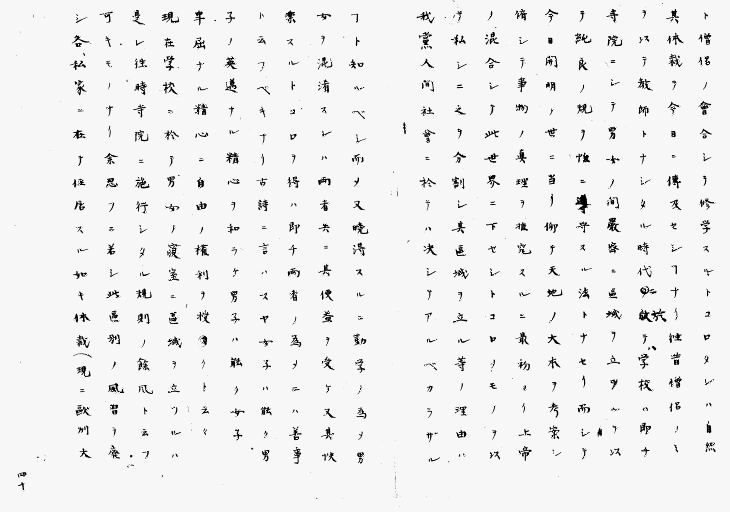 ト僧侶ノ會合シテ修学スルトコロタレハ自然
其体裁ヲ今日ニ傳及セシナリ往昔僧侶ノミ
ヲ以テ教師トナシタル時代ニ於テハ学校ハ即チ
寺院ニシテ男女ノ間嚴密ニ區域ヲ立ツルヲ以
テ純良ノ規ヲ惟ニ導守スル法トナセリ而シテ
今日開明ノ世ニ当リ仰テ天地ノ大本ヲ考案シ
俯シテ事物ノ真理ヲ推究スルニ最初ヨリ上帝
ノ混合シテ此世界ニ下セシトコロノモノヲ以
テ私シニ之ヲ分割シ其區域ヲ立ル等ノ理由ハ
我黨人間社會ニ於テハ决シテアルベカラザル
コト知ルベシ而メ又暁得スルニ勤学ノ為メ男
女ヲ混淆スレハ両者共ニ其便益ヲ受ケ又其快
樂スルトコロヲ得ハ即チ両者ノ為メニハ善事
ト云フベキナリ古詩ニ言ハスヤ女子ハ能ク男
子ノ英邁ナル精心ヲ和ラケ男子ハ能ク女子
卑屈ナル精心ニ自由ノ權利ヲ授クト云々
現在学校ニ於テ男女ノ寢室ニ區域ヲ立ツルハ
是レ往時寺院ニ施行シタル規則ノ餘風ト云フ
可キモノナリ余思フニ若シ此區別ノ風習ヲ廃
シ各私家ニ在テ住居スル如キ体裁(現ニ歐列大
四十